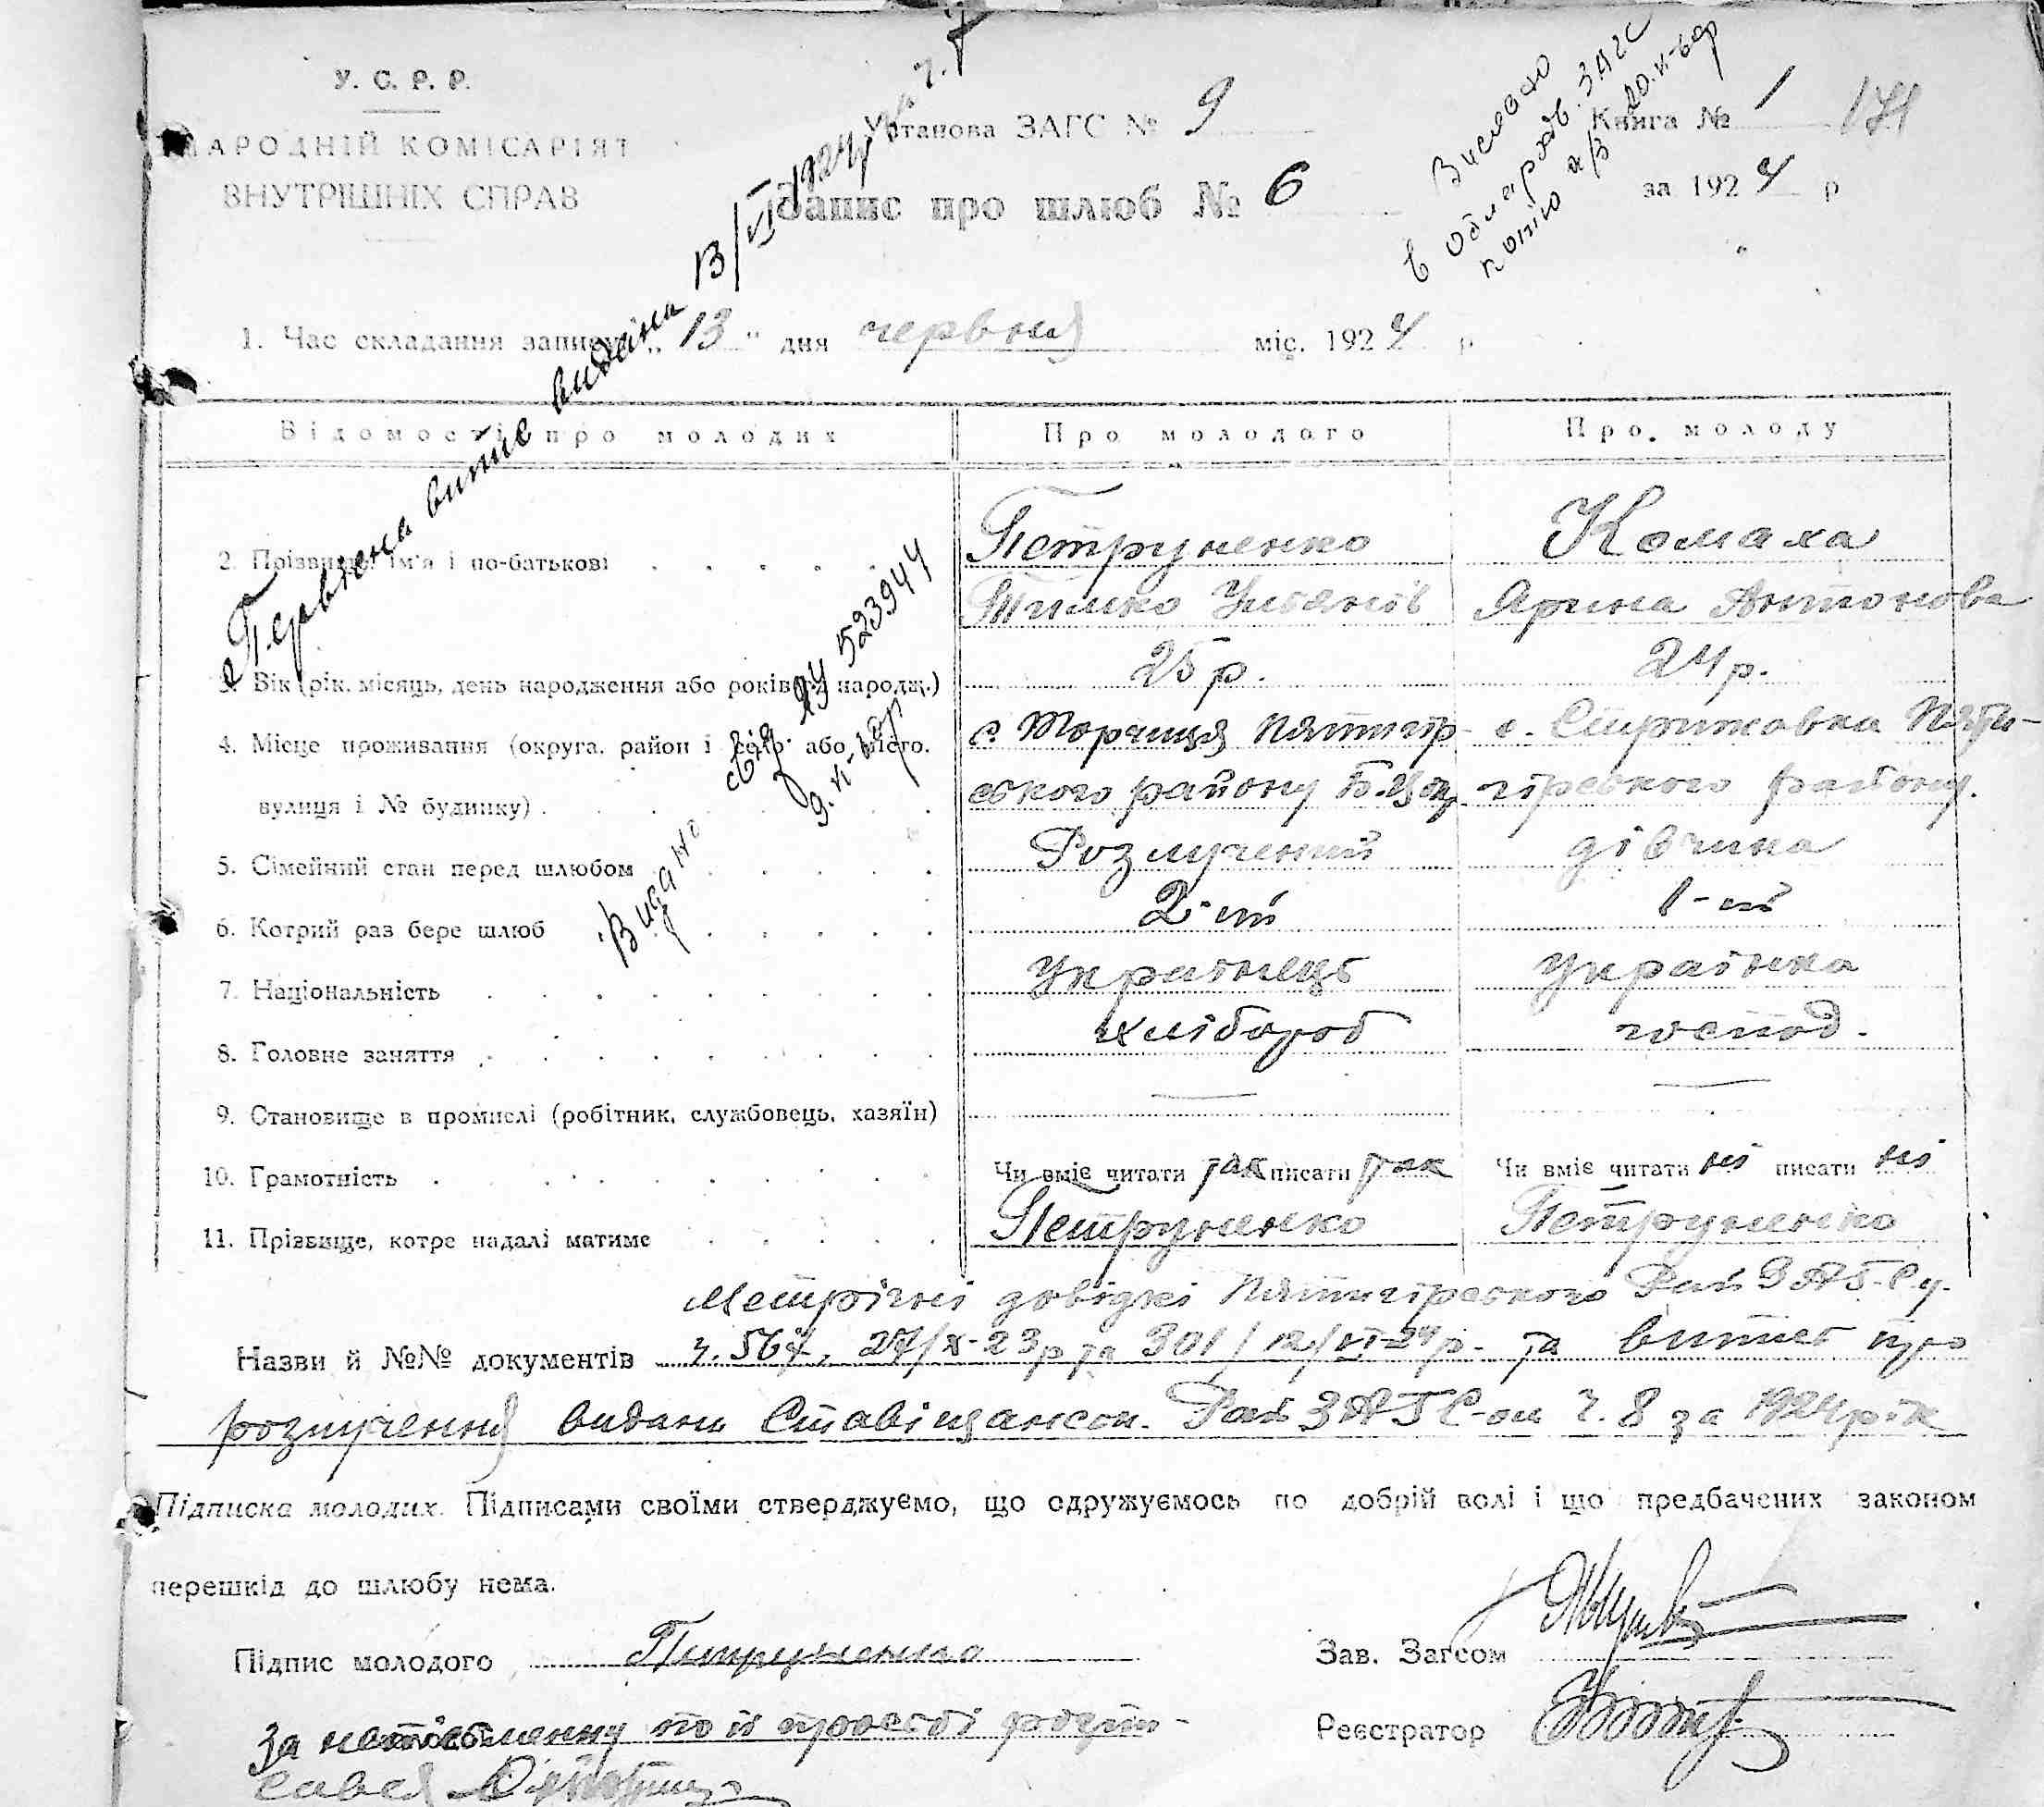 У. С. Р. Р.
НАРОДНІЙ КОМІСАРІЯТ
ВНУТРІШНІХ СПРАВ
Установа ЗАГС № 9
Книга № 1 171
Запис про шлюб № 6
за 1924 р
Вислано
в облархів. ЗАГС
копію а/з 20.
1. Час складання запису „13" дня червня міс. 1924 р
Первісна витис видана 13/VI 1924 р.
Відомості про молодих Про молодого Про молоду
2. Прізвище, ім'я і по-батькові Петруненко Комаха
Тимко Улянів Ярина Антонова
3. Вік (рік, місяць, день народження або років від народж.) 25 р. 24 р.
4. Місце проживання (округа, район і село або місто, с. Торчиця Пятигір- с. Стрижовка Пяти-
вулиця і № будинку) ського району Б.Цер. гірського району.
5. Сімейний стан перед шлюбом Розлучений дівчина
6. Котрий раз бере шлюб 2-ий 1-ий
7. Національність Українець Українка
8. Головне заняття хлібороб господ.
9. Становище в промислі (робітник, службовець, хазяїн)
10. Грамотність Чи вміє читати так писати так Чи вміє читати ні писати ні
11. Прізвище, котре надалі матиме Петруненко Петруненко
Видано свід. ЯУ 523944
Метричні довідкі Пятигірського Рай ЗАГС-у.
Назви й №№ документів ч. 567, 27/X-23р та 301/12/VI-24р. та витис про
розлучення видань Ставіщанськ. Рай ЗАГС-ом ч. 8 за 1924 рік
Підписка молодих. Підписами своїми стверджуємо, що одружуємось по добрій волі і що предбачених законом
перешкід до шлюбу нема.
Підпис молодого Петруненко
Зав. Загсом
За неписьменну по її просьбі розпи-
сався
Реєстратор